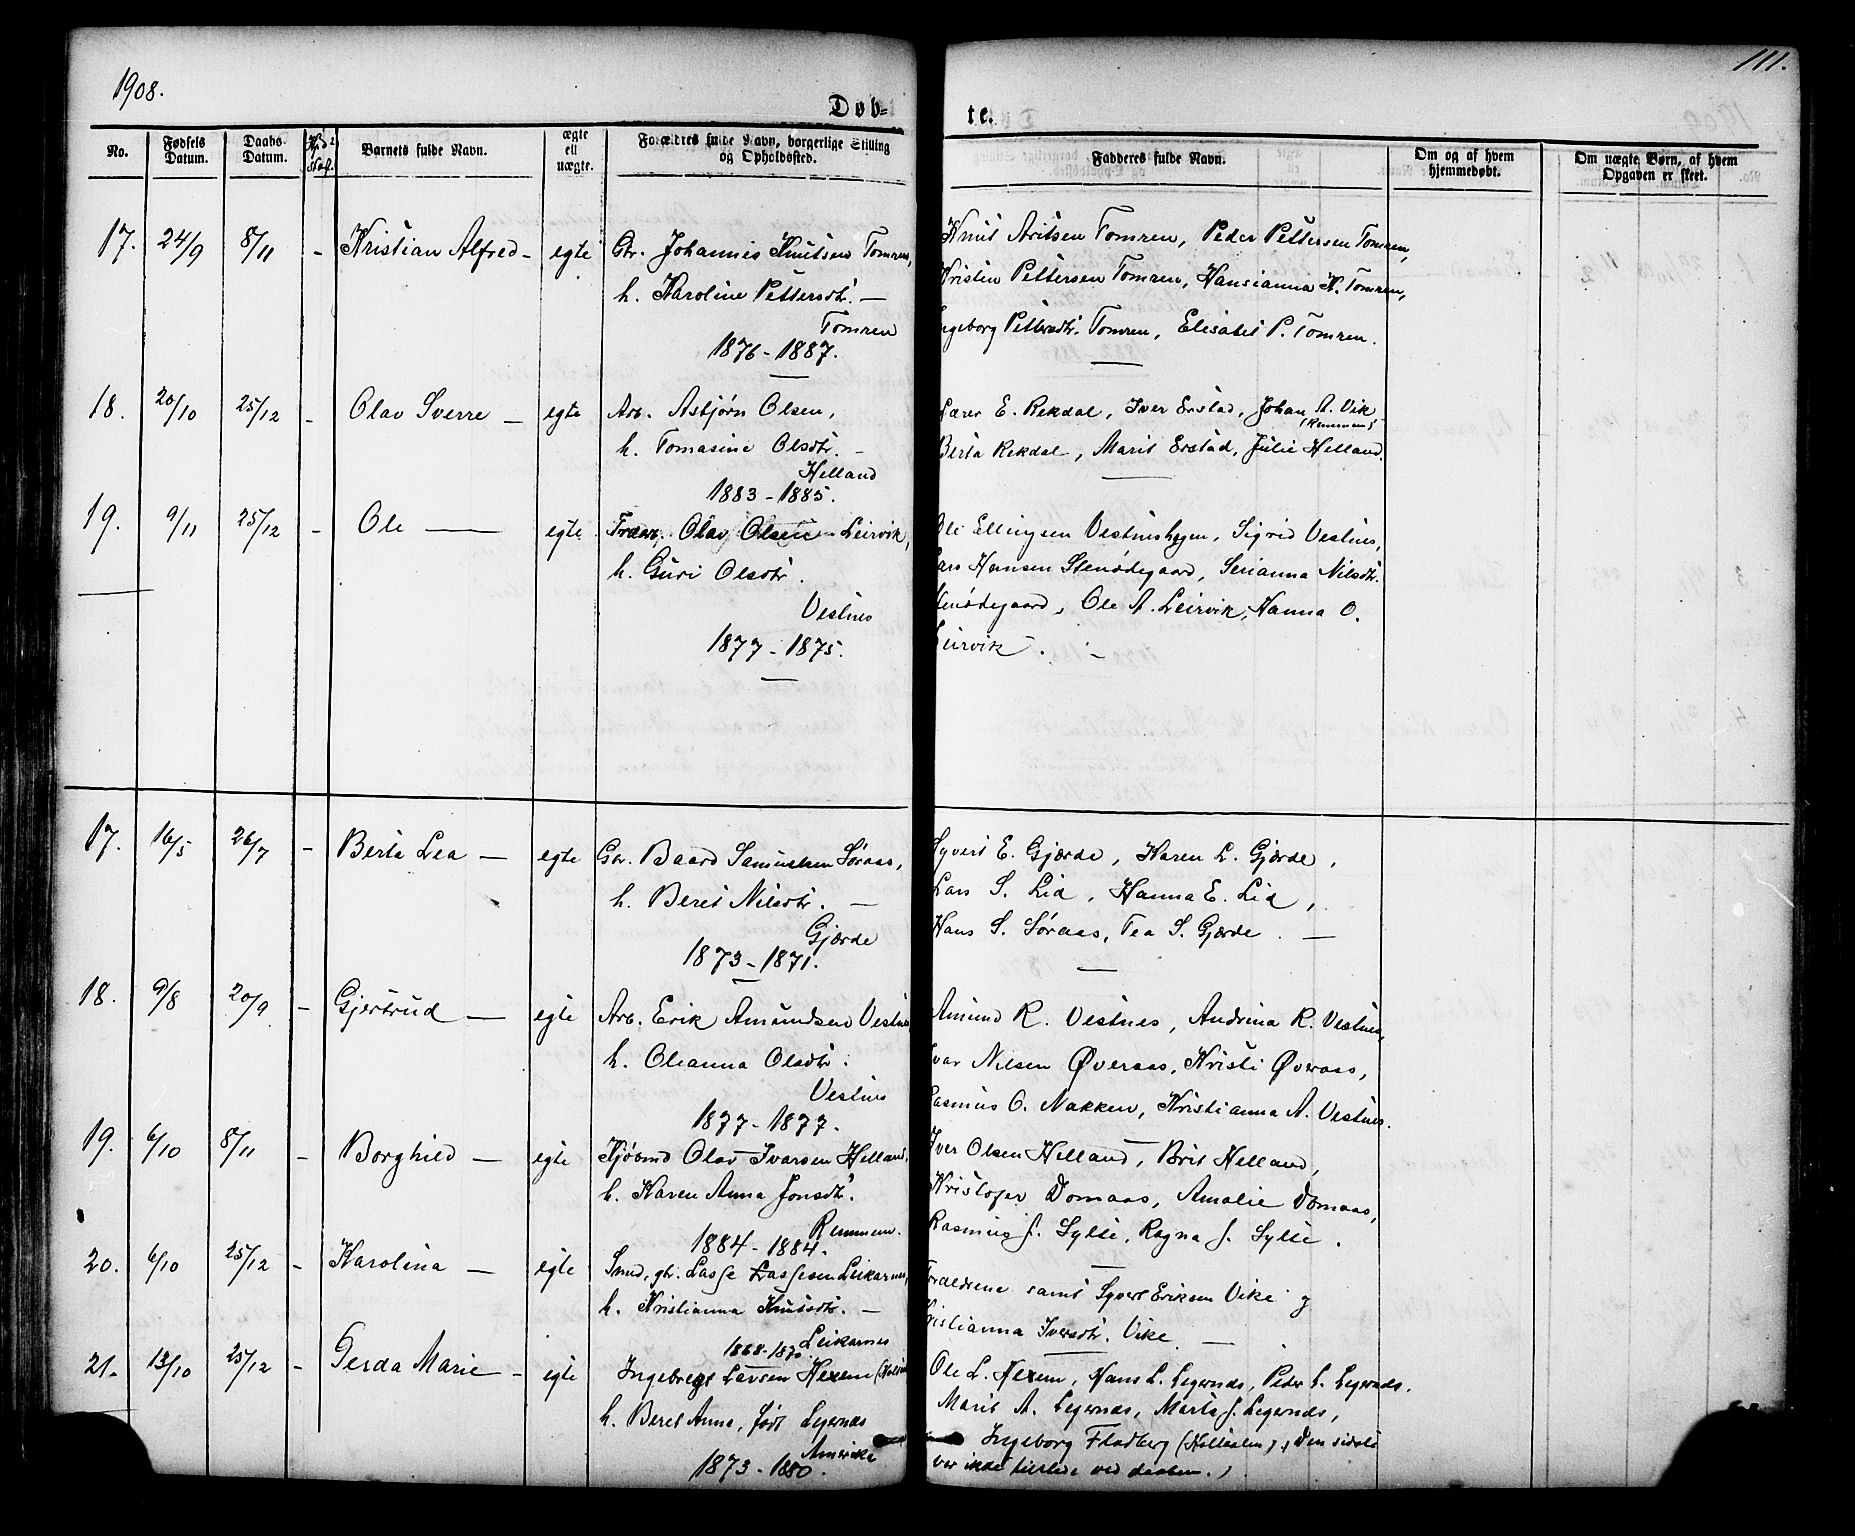 1908.
111.
Døb-
te.
No.
Fødsels Datum.
Daabs Datum.
Barnets fulde Navn.
ægte ell uægte.
Forældres fulde Navn, borgerlige Stilling og Opholdssted.
Fadderes fulde Navn.
Om og af hvem hjemmedøbt.
Om uægte Børn, af hvem Opgaven er skeet.
17. 24/9 8/11 - Kristian Alfred - egte Gbr. Johannes Knutsen Tomren,
h. Karoline Pettersdtr. —
Tomren
1876 - 1887.
Knut Aritsen Tomren, Peder Pettersen Tomren,
Kristen Pettersen Tomren, Hansianna K. Tomren,
Ingeborg Pettersdtr. Tomren, Elisabet P. Tomren.
18. 20/10 25/12 - Olav Sverre - egte Arb. Asbjørn Olsen,
h. Tomasine Olsdtr. -
Helland
1883 - 1885.
Lærer E. Rekdal, Iver Erstad, Johan A. Vik
(Remmem)
Berta Rekdal, Marit Erstad, Julie Helland.
19. 9/11 25/12 - Ole — egte Olav Olsen Leirvik,
h. Guri Olsdtr.
Vestnes
1877 - 1875.
Ole Ellingsen Vestneshagen, Sigrid Vestnes,
Lars Hansen Stenødegaard, Serianna Nilsdtr.
Stenødegaard, Ole A. Leirvik, Hanna O.
Leirvik.
17. 16/5 26/7 - Berta Lea - egte Gbr. Baard Samuelsen Søraas,
h. Beret Nilsdtr. —
Gjærde
1873 - 1871.
Syvert E. Gjærde, Karen L. Gjærde,
Lars S. Lid, Hanna E. Lid,
Hans S. Søraas, Tea S. Gjærde. —
18. 9/8 20/9 - Gjertrud — egte Arb. Erik Amundsen Vestnes
h. Olianna Olsdtr.
Vestnes
1877 - 1877.
Amund R. Vestnes, Andrina R. Vestnes,
Ivar Nilsen Øveraas, Kristi Øveraas,
Rasmus O. Nakken, Kristianna A. Vestnes.
19. 6/10 8/11 - Borghild - egte Kjøbmd Olav Ivarsen Helland,
h. Karen Anna Jonsdtr.
Remmem.
1884 - 1884.
Iver Olsen Helland, Brit Helland,
Kristofer Domaas, Amalie Domaas,
Rasmus J. Sylte, Ragna J. Sylte.
20. 6/10 25/12 - Karolina - egte Smed, gbr. Lasse Lassesen Leikarnes,
h. Kristianna Knutsdtr. —
Leikarnes
1868 - 1870
Forældrene samt Syvert Eriksen Vike og
Kristianna Iversdtr. Vike —
21. 13/10 25/12 - Gerda Marie - egte Ingebregt Larsen Hexem
h. Beret Anna, født Legernes
Amerika
1873 - 1880.
Ole L. Hexem, Hans L. Legernes, Peder L. Legernes.
Marit A. Legernes, Marta J. Legernes,
Ingeborg Fladberg, Den sidste
var ikke tilstede ved daaben.)